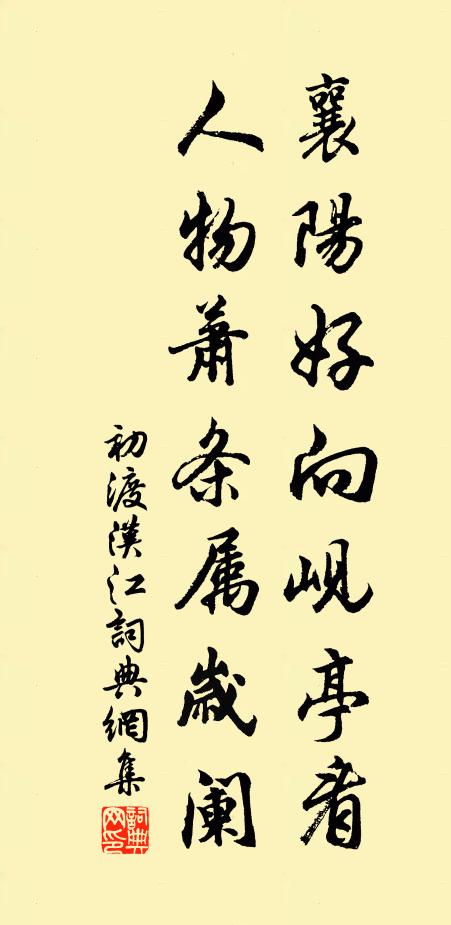 襄陽好向峴亭看
人物蕭条属歲阑
初渡漢江詞典網集
詞典網印